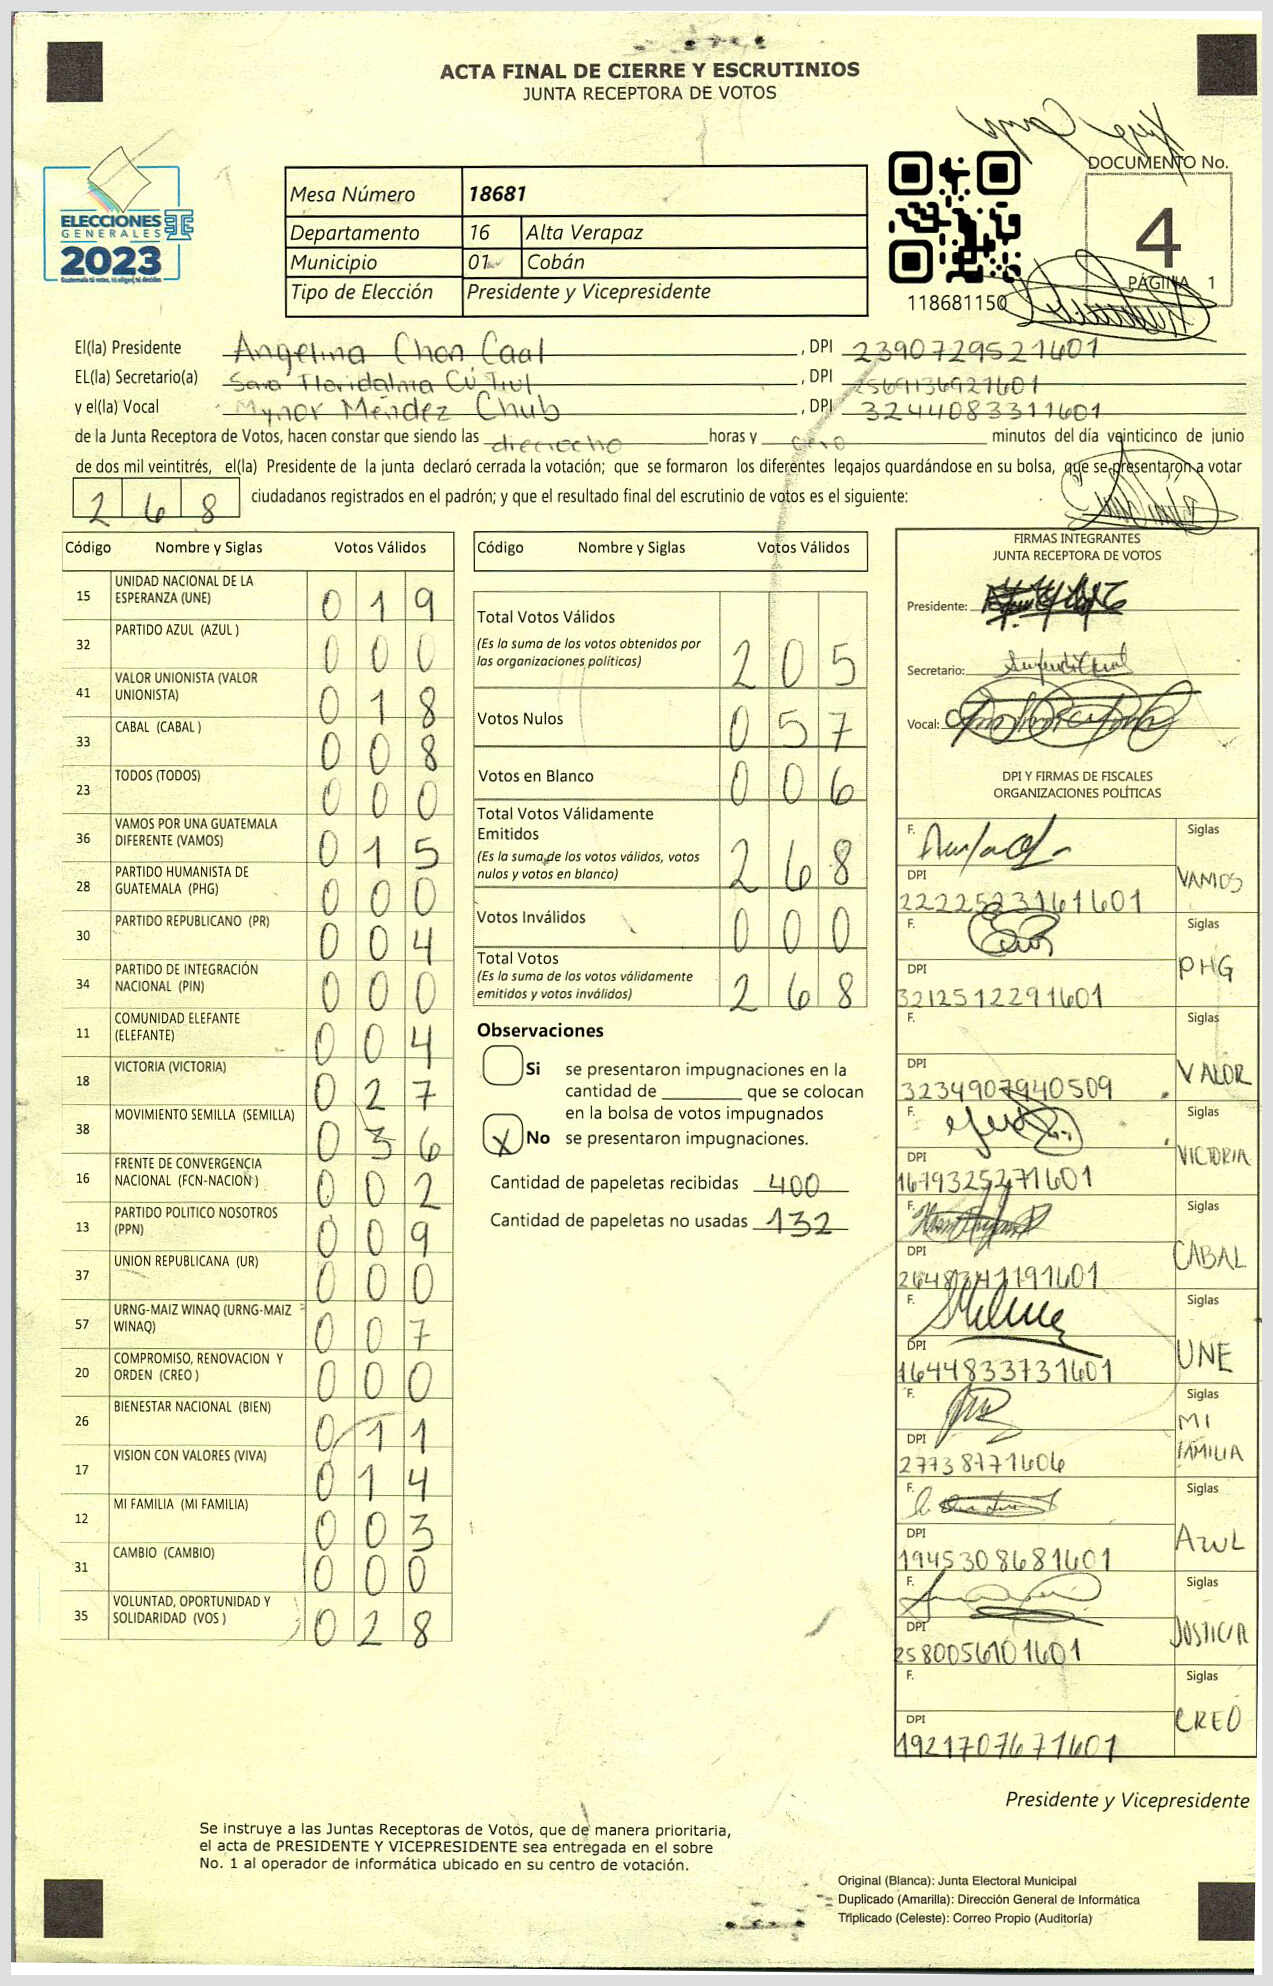 ACTA FINAL DE CIERRE Y ESCRUTINIOS
JUNTA RECEPTORA DE VOTOS
ELECCIONES
GENERALES
2023
Mesa Número 18681
Departamento 16 Alta Verapaz
Municipio 01 Cobán
Tipo de Elección Presidente y Vicepresidente
118681150
DOCUMENTO No.
4
PÁGINA 1
El(la) Presidente Angelina Chon Caal, DPI 2390729521601
EL(la) Secretario(a) Sara Floridalma Cú, DPI 2569136921601
y el(la) Vocal Mynor Méndez Chub, DPI 3244083311601
de la Junta Receptora de Votos, hacen constar que siendo las dieciocho horas y cero minutos del día veinticinco de junio
de dos mil veintitrés, el(la) Presidente de la junta declaró cerrada la votación; que se formaron los diferentes legajos guardándose en su bolsa, que se presentaron a votar
268 ciudadanos registrados en el padrón; y que el resultado final del escrutinio de votos es el siguiente:
Código Nombre y Siglas Votos Válidos
15 UNIDAD NACIONAL DE LA ESPERANZA (UNE) 019
32 PARTIDO AZUL (AZUL ) 000
41 VALOR UNIONISTA (VALOR UNIONISTA) 018
33 CABAL (CABAL ) 008
23 TODOS (TODOS) 000
36 VAMOS POR UNA GUATEMALA DIFERENTE (VAMOS) 015
28 PARTIDO HUMANISTA DE GUATEMALA (PHG) 000
30 PARTIDO REPUBLICANO (PR) 004
34 PARTIDO DE INTEGRACIÓN NACIONAL (PIN) 000
11 COMUNIDAD ELEFANTE (ELEFANTE) 004
18 VICTORIA (VICTORIA) 027
38 MOVIMIENTO SEMILLA (SEMILLA) 036
16 FRENTE DE CONVERGENCIA NACIONAL (FCN-NACION ) 002
13 PARTIDO POLITICO NOSOTROS (PPN) 009
37 UNION REPUBLICANA (UR) 000
57 URNG-MAIZ WINAQ (URNG-MAIZ WINAQ) 007
20 COMPROMISO, RENOVACION Y ORDEN (CREO ) 000
26 BIENESTAR NACIONAL (BIEN) 011
17 VISION CON VALORES (VIVA) 014
12 MI FAMILIA (MI FAMILIA) 003
31 CAMBIO (CAMBIO) 000
35 VOLUNTAD, OPORTUNIDAD Y SOLIDARIDAD (VOS ) 028
Código Nombre y Siglas Votos Válidos
Total Votos Válidos 205
(Es la suma de los votos obtenidos por
las organizaciones politicas)
Votos Nulos 057
Votos en Blanco 006
Total Votos Válidamente
Emitidos 268
(Es la suma de los votos válidos, votos
nulos y votos en blanco)
Votos Inválidos 000
Total Votos 268
(Es la suma de los votos válidamente
emitidos y votos inválidos)
Observaciones
Si se presentaron impugnaciones en la
cantidad de ________ que se colocan
en la bolsa de votos impugnados
X No se presentaron impugnaciones.
Cantidad de papeletas recibidas 400
Cantidad de papeletas no usadas 132
FIRMAS INTEGRANTES
JUNTA RECEPTORA DE VOTOS
Presidente:
Secretario:
Vocal:
DPI Y FIRMAS DE FISCALES
ORGANIZACIONES POLÍTICAS
F. Siglas
DPI VAMOS
2222523161601
F. Siglas
DPI PHG
3212512291601
F. Siglas
DPI VALOR
3234907940509
F. Siglas
DPI VICTORIA
1679325271601
F. Siglas
DPI CABAL
F. Siglas
DPI UNE
1644833731601
F. Siglas
MI
DPI FAMILIA
F. Siglas
DPI AZUL
1945308681601
F. Siglas
DPI JUSTICIA
2580056101601
F. Siglas
DPI CREO
1921707671601
Presidente y Vicepresidente
Se instruye a las Juntas Receptoras de Votos, que de manera prioritaria,
el acta de PRESIDENTE Y VICEPRESIDENTE sea entregada en el sobre
No. 1 al operador de informática ubicado en su centro de votación.
Original (Blanca): Junta Electoral Municipal
Duplicado (Amarilla): Dirección General de Informática
Triplicado (Celeste): Correo Propio (Auditoría)